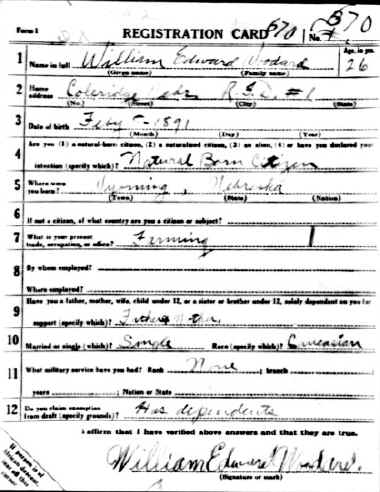 570
Form 1 REGISTRATION CARD 570 No.
Age, in yrs.
1 Name in full William Edward Woodard 26
(Given name) (Family name)
2 Home address Coleridge Nebr R.F.D. #1
(No.) (Street) (City) (State)
3 Date of birth Feby 1891
(Month) (Day) (Year)
Are you (1) a natural-born citizen, (2) a naturalized citizen, (3) an alien, (4) or have you declared your
4 intention (specify which)? Natural Born Citizen
5 Where were you born? Wyoming, Nebraska
(Town) (State) (Nation)
6 If not a citizen, of what country are you a citizen or subject?
7 What is your present trade, occupation, or office? Farming
8 By whom employed?
Where employed?
Have you a father, mother, wife, child under 12, or a sister or brother under 12, solely dependent on you for
9 support (specify which)? Father Mother
10 Married or single (which)? Single Race (specify which)? Caucasian
11 What military service have you had? Rank None ; branch
years ; Nation or State
12 Do you claim exemption from draft (specify grounds)? Has dependents
I affirm that I have verified above answers and that they are true.
William Edward Woodard
(Signature or mark)
If person is of African descent